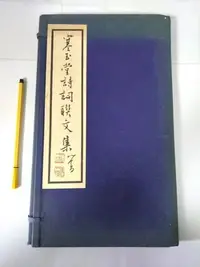 寒玉堂詩詞聯文集